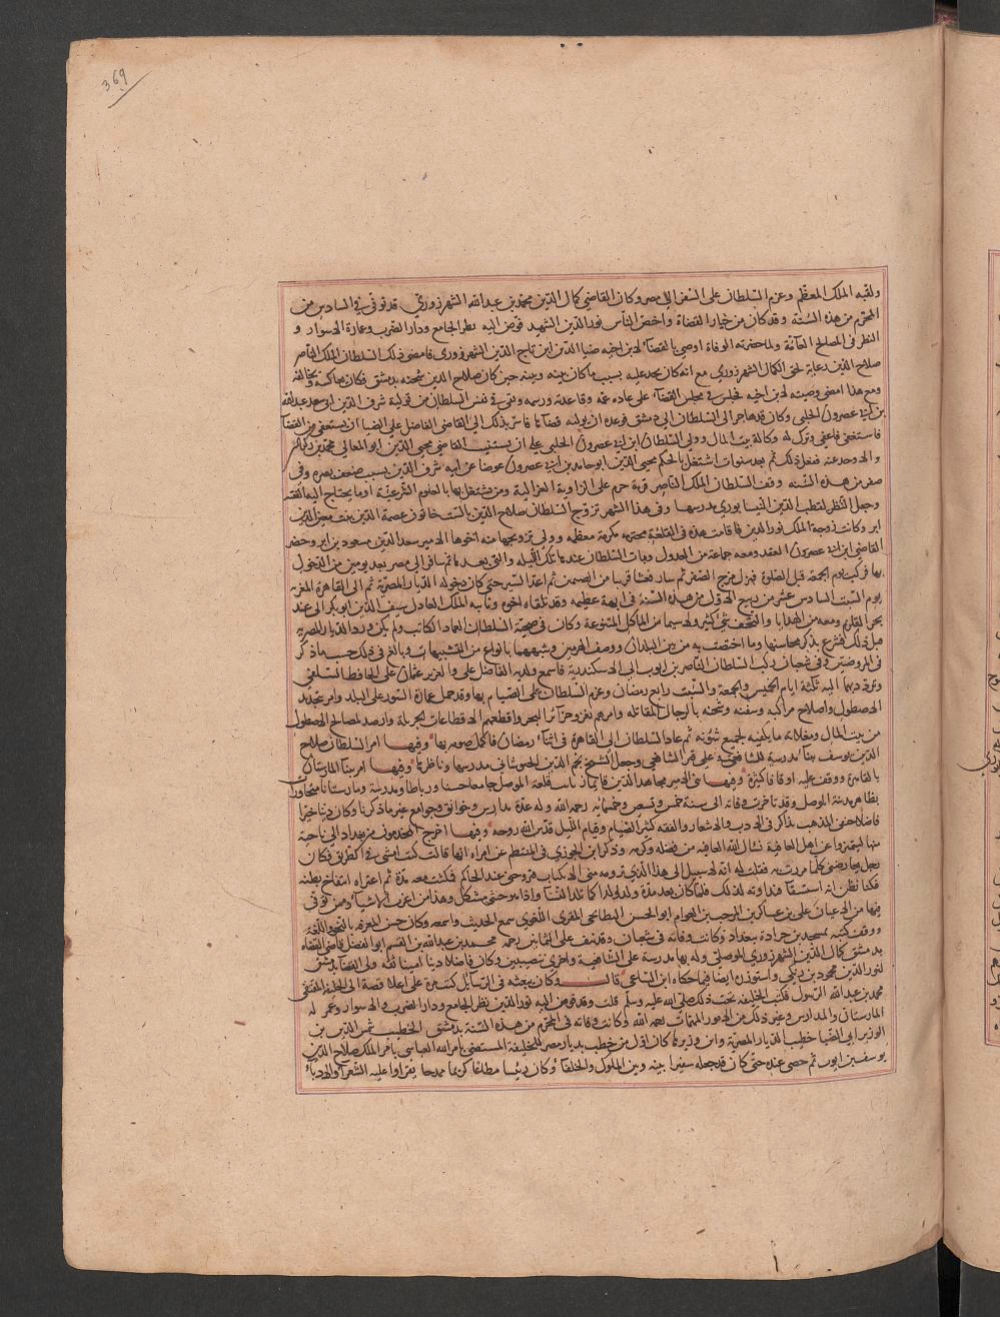 369
ولقبه الملك المعظم وعزم السلطان على السفر الى مصر وكان القاضي كمال الدين محمد بن عبد الله الشهرزوري قد توفي في السادس من
المحرم من هذه السنة وقد كان من خيار القضاة واخص الناس بنور الدين الشهيد فوض اليه نظر الجامع ودار الضرب وعمارة الاسوار و
النظر في المصالح العامة ولما حضرته الوفاة اوصى بالقضاء لابن اخيه ضيا الدين ابن تاج الدين الشهرزوري فامضى ذلك السلطان الملك الناصر
صلاح الدين رعاية لحق الكمال الشهرزوري مع انه كان يجد عليه بسبب ما كان بينه وبينه حين كان صلاح الدين شحنه بدمشق فكان يعاكسه ويخالفه
ومع هذا امضى وصيته لابن اخيه فجلس في مجلس القضاء على عادة عمه وقاعدته ورسمه وبقي في نفس السلطان من تولية شرف الدين ابو سعد عبد الله
بن ابي عصرون الحلبي وكان قد هاجر الى السلطان الى دمشق فوعده ان يوليه قضاءها فاسر بذلك الى القاضي الفاضل على الضيا ان يستعفي من القضا
فاستعفى فاعفي وترك له وكالة بيت المال وولى السلطان ابن ابي عصرون الحلبي على ان يستنيب القاضي محيي الدين ابو المعالي محمد بن زكي الدين
والاوحد عنه ففعل ذلك ثم بعد سنوات اشتغل بالحكم محيي الدين ابو حامد بن ابي عصرون عوضا عن ابيه شرف الدين بسبب ضعف بصره وفي
صفر من هذه السنه وقف السلطان الملك الناصر قرية حزم على الزاوية الغزالية ومن يشتغل بها بالعلوم الشرعية او ما يحتاج اليه الفقيه
وجعل النظر لقطب الدين النيسابوري مدرسها وفي هذا الشهر تزوج السلطان صلاح الدين بالست خاتون عصمة الدين بنت معين الدين
انر وكانت زوجة الملك نور الدين فاقامت هذه في القلعة محترمه مكرمة معظمه وولي تزويجها منه اخوها الامير سعد الدين مسعود بن انر وحضر
القاضي ابن ابي عصرون العقد ومعه جماعة من العدول وبات السلطان عندها تلك الليله والتي بعدها ثم سافر الى مصر بعد يومين من الدخول
بها فركب يوم الجمعه قبل الصلوة فنزل مرج الصفر ثم سار فعشا قريبا من الصمين ثم اغذ السير حتى كان دخوله الديار المصرية ثم الى القاهرة المعزية
يوم السبت السادس عشر من ربيع الاول من هذه السنة في ابهة عظيمه وقد تلقاه اخوه ونايبه الملك العادل سيف الدين ابو بكر الى عند
بحر القلزم ومعه من الهدايا والتحف شي كثير ولا سيما من المآكل المتنوعة وكان في صحبة السلطان العماد الكاتب ولم يكن ورد الديار المصريه
قبل ذلك فشرع يذكر محاسنها وما اختصت به من بين البلدان ووصف الهرمين وشبههما بانواع من التشبيهات وبالغ في ذلك حسب ما ذكر
في الروضتين وفي شعبان ركب السلطان الناصر بن ايوب الى الاسكندرية فاسمع ولديه الفاضل علي والعزيز عثمان على الحافظ السلفي
وتردد بهما اليه ثلثة ايام الخميس والجمعة والسبت رابع رمضان وعزم السلطان على الصيام بها وقد كمل عمارة السور على البلد وامر بتجديد
الاصطول واصلاح مراكبه وسفنه وشحنه بالرجال المقاتله وامرهم بغزو جزائر البحر واقطعهم الاقطاعات الجزيلة وارصد لمصالح الاصطول
من بيت المال وغلاته ما يكفيه لجميع شئونه ثم عاد السلطان الى القاهرة في اثناء رمضان فاكمل صومه بها وفيها امر السلطان صلاح
الدين يوسف ببناء مدرسة للشافعية على قبر الشافعي وجعل الشيخ نجم الدين الخبوشاني مدرسها وناظرها وفيها امر ببنا المارستان
بالقاهرة ووقف عليه اوقافا كثيرة وفيها بنى الامير مجاهد الدين قايماز نايب قلعة الموصل جامعا حسنا ورباطا ومدرسة ومارستانا متجاورات
بظاهر مدينة الموصل وقد تاخرت وفاته الى سنة خمس وتسعين وخمسماية رحمه الله وله عدة مدارس وخوانق وجوامع غير ما ذكرنا وكان دينا خيرا
فاضلا حنفي المذهب يذاكر في الادب والاشعار والفقه كثير الصيام وقيام الليل قدس الله روحه وفيها اخرج المجذمون من بغداد الى ناحية
منها ليتميزوا عن اهل العافية نسال الله العافيه من فضله وكرمه وذكر ابن الجوزي في المنتظم عن امراة انها قالت كنت امشي في الطريق فكان
رجل يعارضني كلما مررت به فقلت له انه لا سبيل الى هذا الذي ترومه مني الا بكتاب فتزوجني عند الحاكم فمكثت معه مدة ثم اعتراه انتفاخ ببطنه
فكنا نظن انه استسقا فنداويه لذلك فلما كان بعد مدة ولد ولدا كما تلد النسا واذا هو خنثى مشكل وهذا من اغرب الاشياء ومن توفي
فيها من الاعيان علي بن عساكر بن المرحب بن العوام ابو الحسن البطايحي المقري اللغوي سمع الحديث واسمعه وكان حسن المعرفه بالنحو واللغة
ووقف كتبه بمسجد بن جرادة ببغداد وكانت وفاته في شعبان وقد نيف على الثمانين رحمه محمد بن عبد الله بن القسم ابو الفضل قاضي القضاه
بدمشق كمال الدين الشهرزوري الموصلي وله بها مدرسة على الشافعية واخرى بنصيبين وكان فاضلا دينا امينا ثقه ولي القضا بدمشق
لنور الدين محمود بن زنكي واستوزره ايضا فيما حكاه ابن الساعي قال وكان يبعثه في الرسايل كتب مرة على اعلا قصة الى الخليفة المقتفي
محمد بن عبد الله الرسول فكتب الخليفه تحت ذلك صلى الله عليه وسلم قلت وقد فوض اليه نور الدين نظر الجامع ودار الضرب والاسوار وعمر له
المارستان والمدارس وغير ذلك من الامور المهمات رحمه الله وكانت وفاته في المحرم من هذه السنة بدمشق الخطيب شمس الدين بن
الوزير ابي الضيا خطيب الديار المصرية وابن وزيرها كان اول من خطب بديار مصر للخليفة المستضي بامر الله العباسي بامر الملك صلاح الدين
يوسف بن ايوب ثم حصى عنده حتى كان قد جعله سفيرا بينه وبين الملوك والخلفاء وكان رئيسا مطاعا كريما ممدحا يقراوا عليه الشعرا والادباء